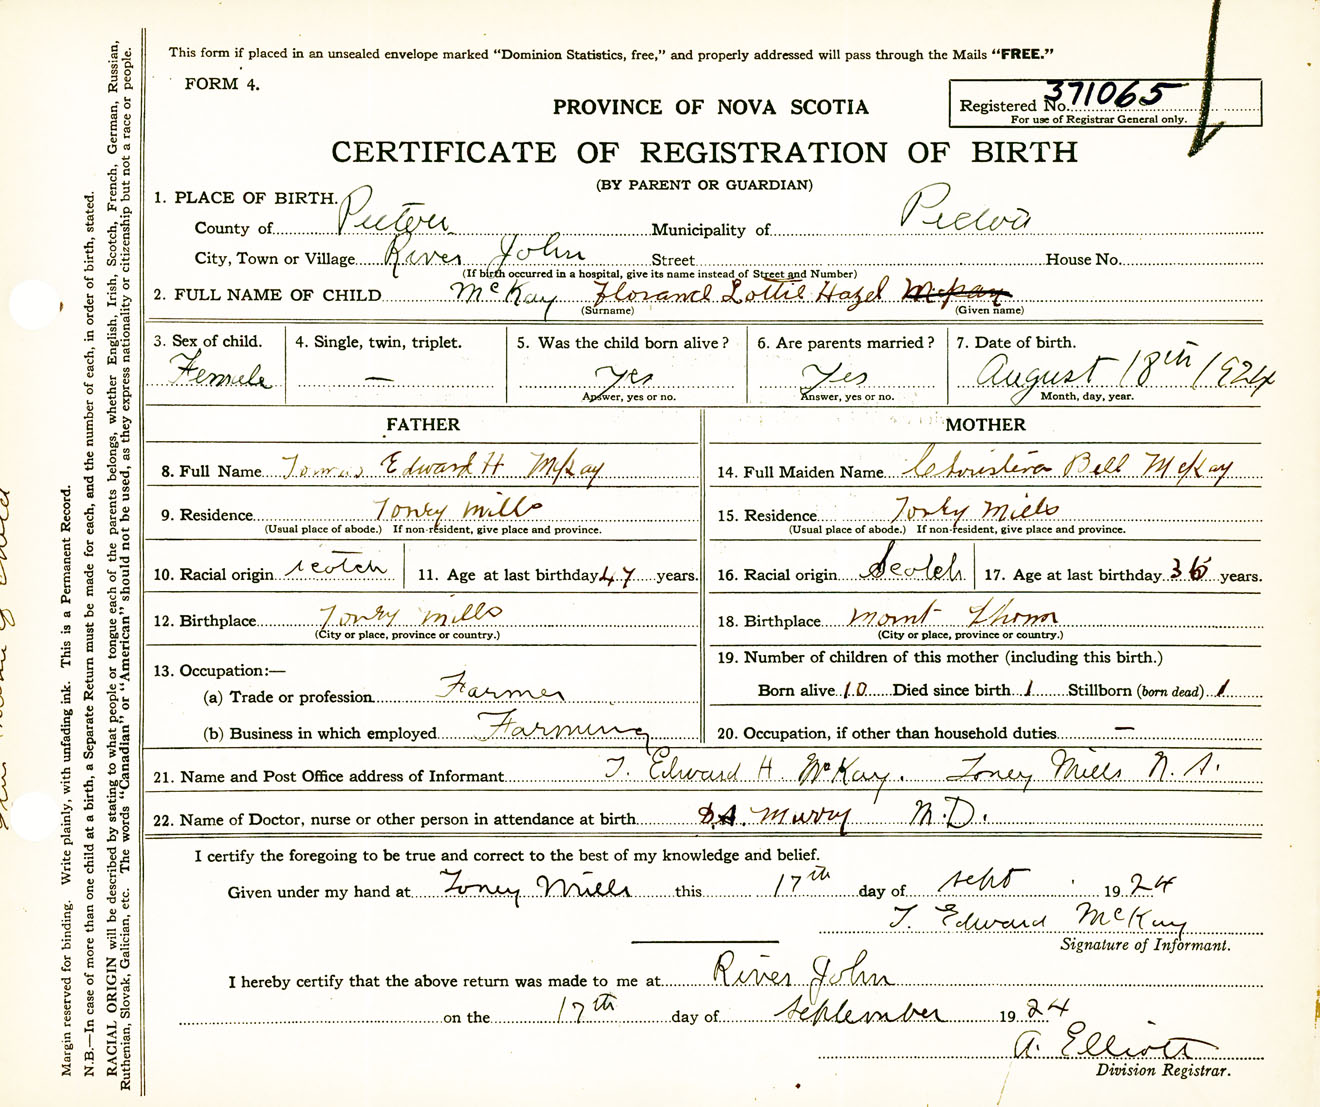 This form if placed in an unsealed envelope marked "Dominion Statistics, free," and properly addressed will pass through the Mails "FREE."
FORM 4.
PROVINCE OF NOVA SCOTIA
Registered No. 371065
For use of Registrar General only.
CERTIFICATE OF REGISTRATION OF BIRTH
(BY PARENT OR GUARDIAN)
1. PLACE OF BIRTH.
County of Pictou Municipality of Pictou
City, Town or Village River John Street House No.
(If birth occurred in a hospital, give its name instead of Street and Number)
2. FULL NAME OF CHILD McKay Lottie Hazel McKay
(Surname) (Given name)
3. Sex of child. 4. Single, twin, triplet. 5. Was the child born alive? 6. Are parents married? 7. Date of birth.
Female — Yes Yes August 18th 1924
Answer, yes or no. Answer, yes or no. Month, day, year.
FATHER MOTHER
8. Full Name Edward H McKay 14. Full Maiden Name Bell McKay
9. Residence Toney Mills 15. Residence Toney Mills
(Usual place of abode.) If non-resident, give place and province. (Usual place of abode.) If non-resident, give place and province.
10. Racial origin Scotch 11. Age at last birthday 47 years. 16. Racial origin Scotch 17. Age at last birthday 36 years.
12. Birthplace Toney Mills 18. Birthplace Mount Thom
(City or place, province or country.) (City or place, province or country.)
13. Occupation:— 19. Number of children of this mother (including this birth.)
(a) Trade or profession Farmer Born alive 10 Died since birth 1 Stillborn (born dead) 1
(b) Business in which employed Farming 20. Occupation, if other than household duties —
21. Name and Post Office address of Informant T. Edward H McKay. Toney Mills N. S.
22. Name of Doctor, nurse or other person in attendance at birth Murray M.D.
I certify the foregoing to be true and correct to the best of my knowledge and belief.
Given under my hand at Toney Mills this 17th day of Sept 1924
T. Edward McKay
Signature of Informant.
I hereby certify that the above return was made to me at River John
on the 17th day of September 1924
A. Elliott
Division Registrar.
Margin reserved for binding. Write plainly, with unfading ink. This is a Permanent Record.
N.B.—In case of more than one child at a birth, a Separate Return must be made for each, and the number of each, in order of birth, stated.
RACIAL ORIGIN will be described by stating to what people or tongue each of the parents belongs, whether English, Irish, Scotch, French, German, Russian,
Ruthenian, Slovak, Galician, etc. The words "Canadian" or "American" should not be used, as they express nationality or citizenship but not a race or people.